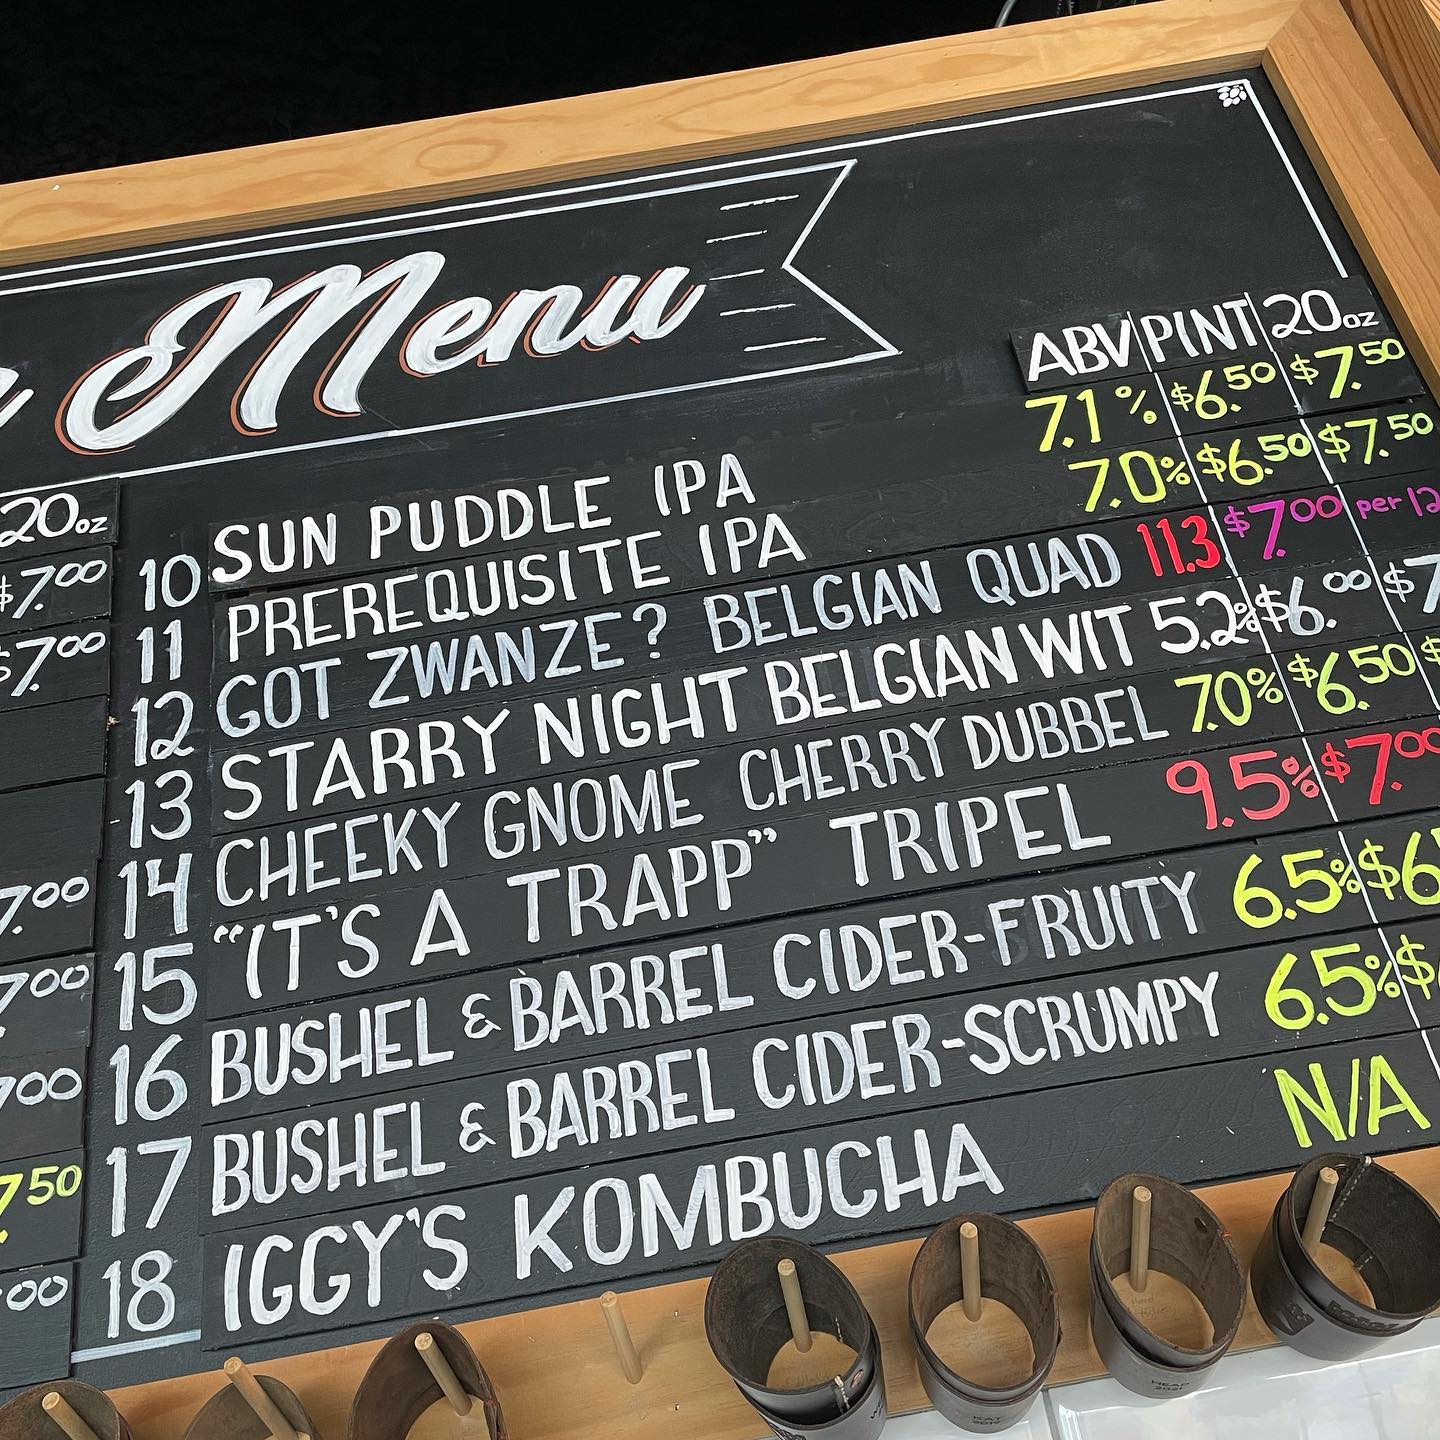 Menu
ABV PINT 20oz
20oz
10 SUN PUDDLE IPA 7.1% $6.50 $7.50
$7.00
11 PREREQUISITE IPA 7.0% $6.50 $7.50
$7.00
12 GOT ZWANZE? BELGIAN QUAD 11.3 $7.00 per 12
13 STARRY NIGHT BELGIAN WIT 5.2% $6.00 $7
14 CHEEKY GNOME CHERRY DUBBEL 7.0% $6.50 $
7.00
15 "IT'S A TRAPP" TRIPEL 9.5% $7.00
7.00
16 BUSHEL & BARREL CIDER-FRUITY 6.5% $6
00
17 BUSHEL & BARREL CIDER-SCRUMPY 6.5% $
7.50
18 IGGY'S KOMBUCHA N/A
.00
HEAD
2021
KAT
2019